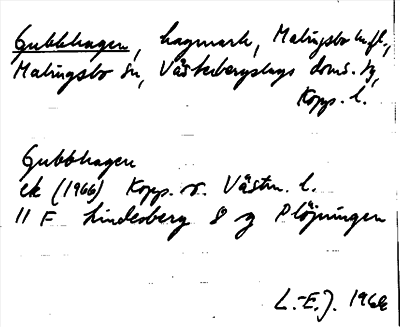 Gubbhagen, hagmark, Malingsbo kvfl.,
Malingsbo sn, Västerbergslags doms. tg,
Kopp. l.
Gubbhagen
ek (1966) Kopp. o. Västm. l.
11 F Lindesberg 8 g Plöjningen
L.-E.J. 1968